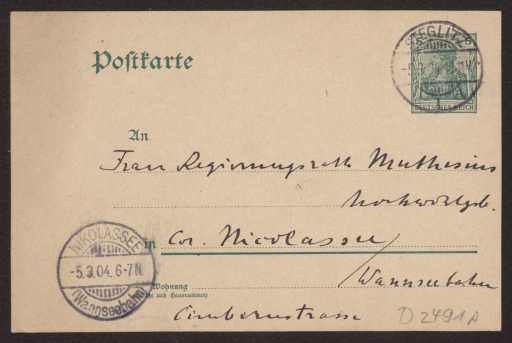 Postkarte
STEGLITZ
DEUTSCHES REICH
An
Frau Regierungsrath Muthesius
Hochwohlgb.
in Cr. Nicolassee
Wannseebahn
Wohnung
(Straße und Hausnummer)
Cimbernstrasse
NIKOLASSEE
-5.3.04.6-7N.
(Wannseebahn)
D 2491A